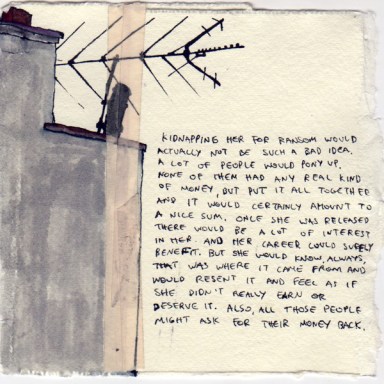 KIDNAPPING HER FOR RANSOM WOULD
ACTUALLY NOT BE SUCH A BAD IDEA.
A LOT OF PEOPLE WOULD PONY UP.
NONE OF THEM HAD ANY REAL KIND
OF MONEY, BUT PUT IT ALL TOGETHER
AND IT WOULD CERTAINLY AMOUNT TO
A NICE SUM. ONCE SHE WAS RELEASED
THERE WOULD BE A LOT OF INTEREST
IN HER. AND HER CAREER COULD SURELY
BENEFIT. BUT SHE WOULD KNOW, ALWAYS,
THAT WAS WHERE IT CAME FROM AND
WOULD RESENT IT AND FEEL AS IF
SHE DIDN'T REALLY EARN OR
DESERVE IT. ALSO, ALL THOSE PEOPLE
MIGHT ASK FOR THEIR MONEY BACK.